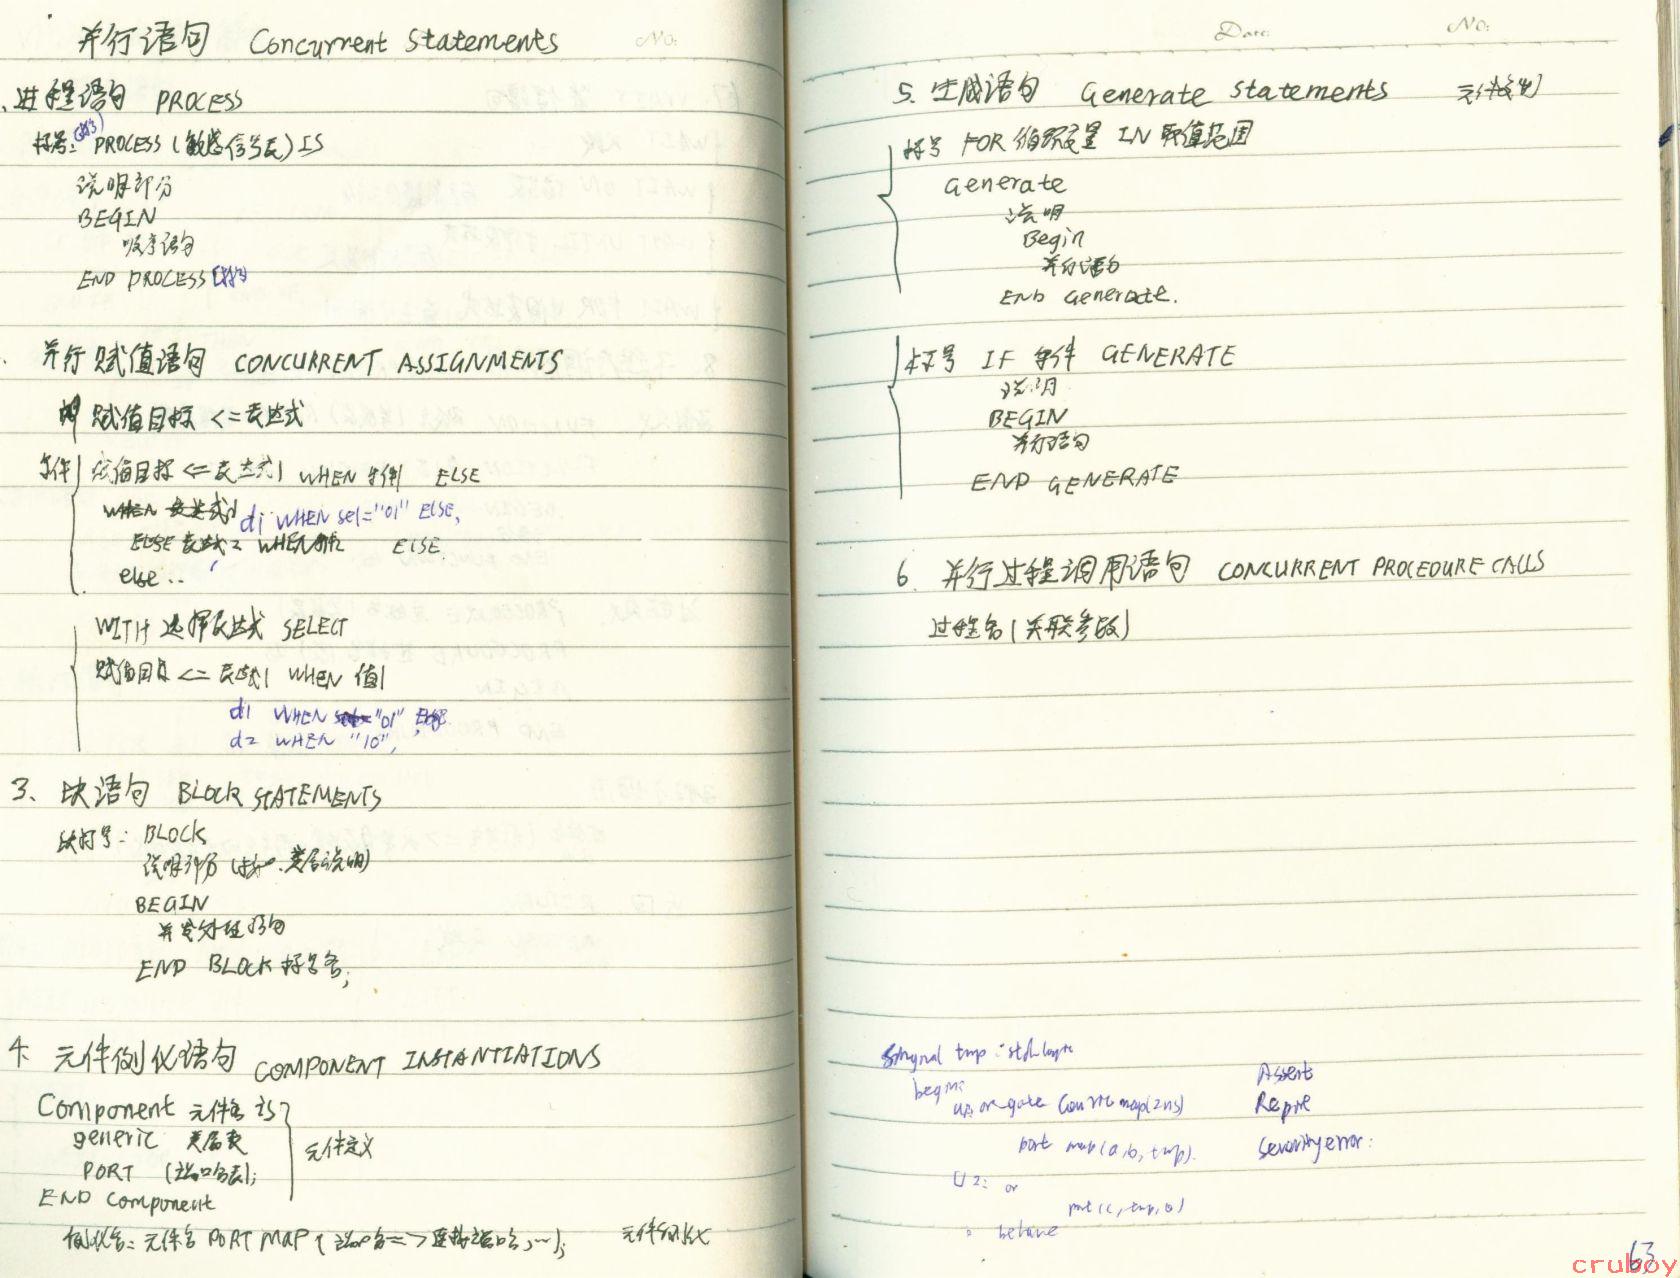 并行语句 Concurrent Statements No:
进程语句 PROCESS
标号: PROCESS (敏感信号表) IS
说明部分
BEGIN
顺序语句
END PROCESS [标号]
并行赋值语句 CONCURRENT ASSIGNMENTS
赋值目标 <= 表达式
条件 赋值目标 <= 表达式1 WHEN 条件1 ELSE
WHEN 表达式1 d1 WHEN sel="01" ELSE,
ELSE 表达式2 WHEN 条件2 ELSE
else ..
WITH 选择表达式 SELECT
赋值目标 <= 表达式1 WHEN 值1
d1 WHEN "01"
d2 WHEN "10",
3、块语句 BLOCK STATEMENTS
块标号: BLOCK
说明部分 类属说明)
BEGIN
并发处理语句
END BLOCK 标号名;
4 元件例化语句 COMPONENT INSTANTIATIONS
Component 元件名 is
generic 类属表
PORT (端口名表);
END Component
元件定义
例化名: 元件名 PORT MAP (端口名=>连接端口名,…); 元件例化
Date: No:
5. 生成语句 Generate Statements
标号 FOR 循环变量 IN 取值范围
Generate
说明
Begin
并行语句
END Generate.
标号 IF 条件 GENERATE
说明
BEGIN
并行语句
END GENERATE
6. 并行过程调用语句 CONCURRENT PROCEDURE CALLS
过程名(关联参数)
tmp :
begin
or-gate map(2ns)
port map(a,b,tmp).
U2: or
(c,tmp,o)
behave
Assert
error:
63
cruboy